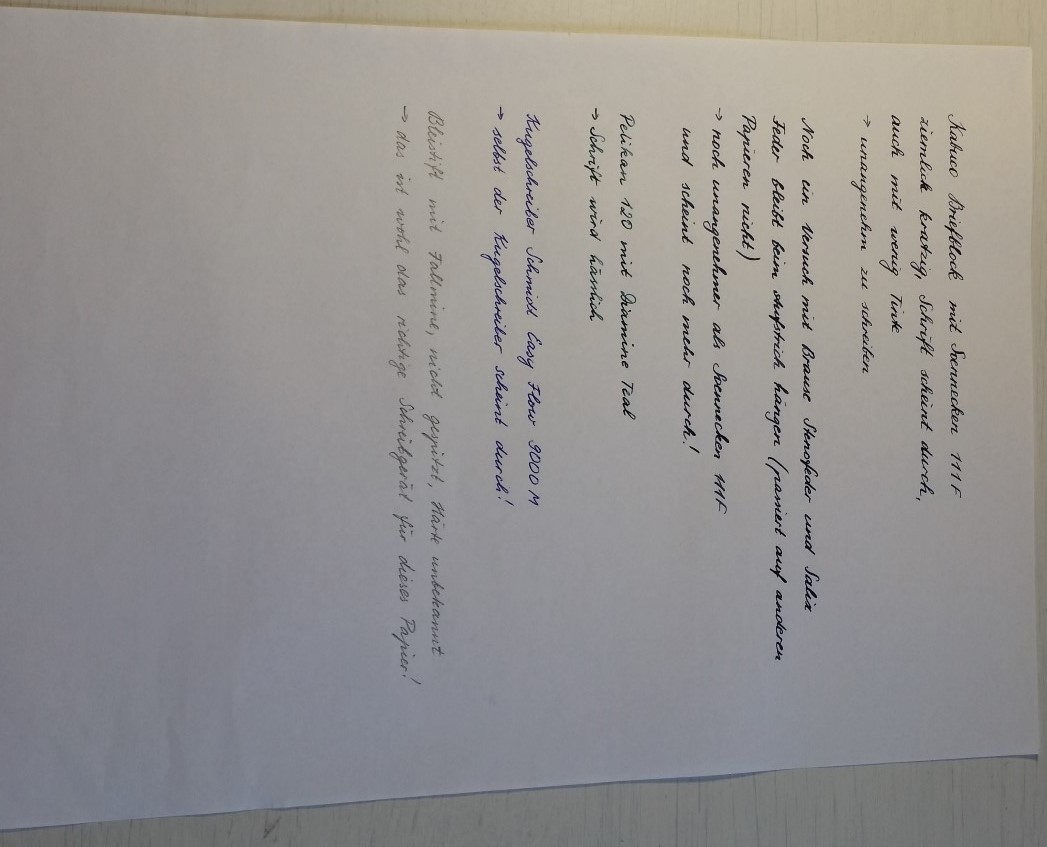 Kakuo Briefblock mit Soennecken 111 F
ziemlich kratzig, Schrift scheint durch,
auch mit wenig Tinte
→ unangenehm zu schreiben
Noch ein Versuch mit Brause Stenofeder und Salix
Feder bleibt beim Aufstrich hängen (passiert auf anderen
Papieren nicht)
→ noch unangenehmer als Soennecken 111F
und scheint noch mehr durch!
Pelikan 120 mit Diamine Teal
→ Schrift wird hässlich
Kugelschreiber Schmidt Easy Flow 9000 M
→ selbst der Kugelschreiber scheint durch!
Bleistift mit Fallmine, nicht gespitzt, Härte unbekannt
→ das ist wohl das richtige Schreibgerät für dieses Papier!